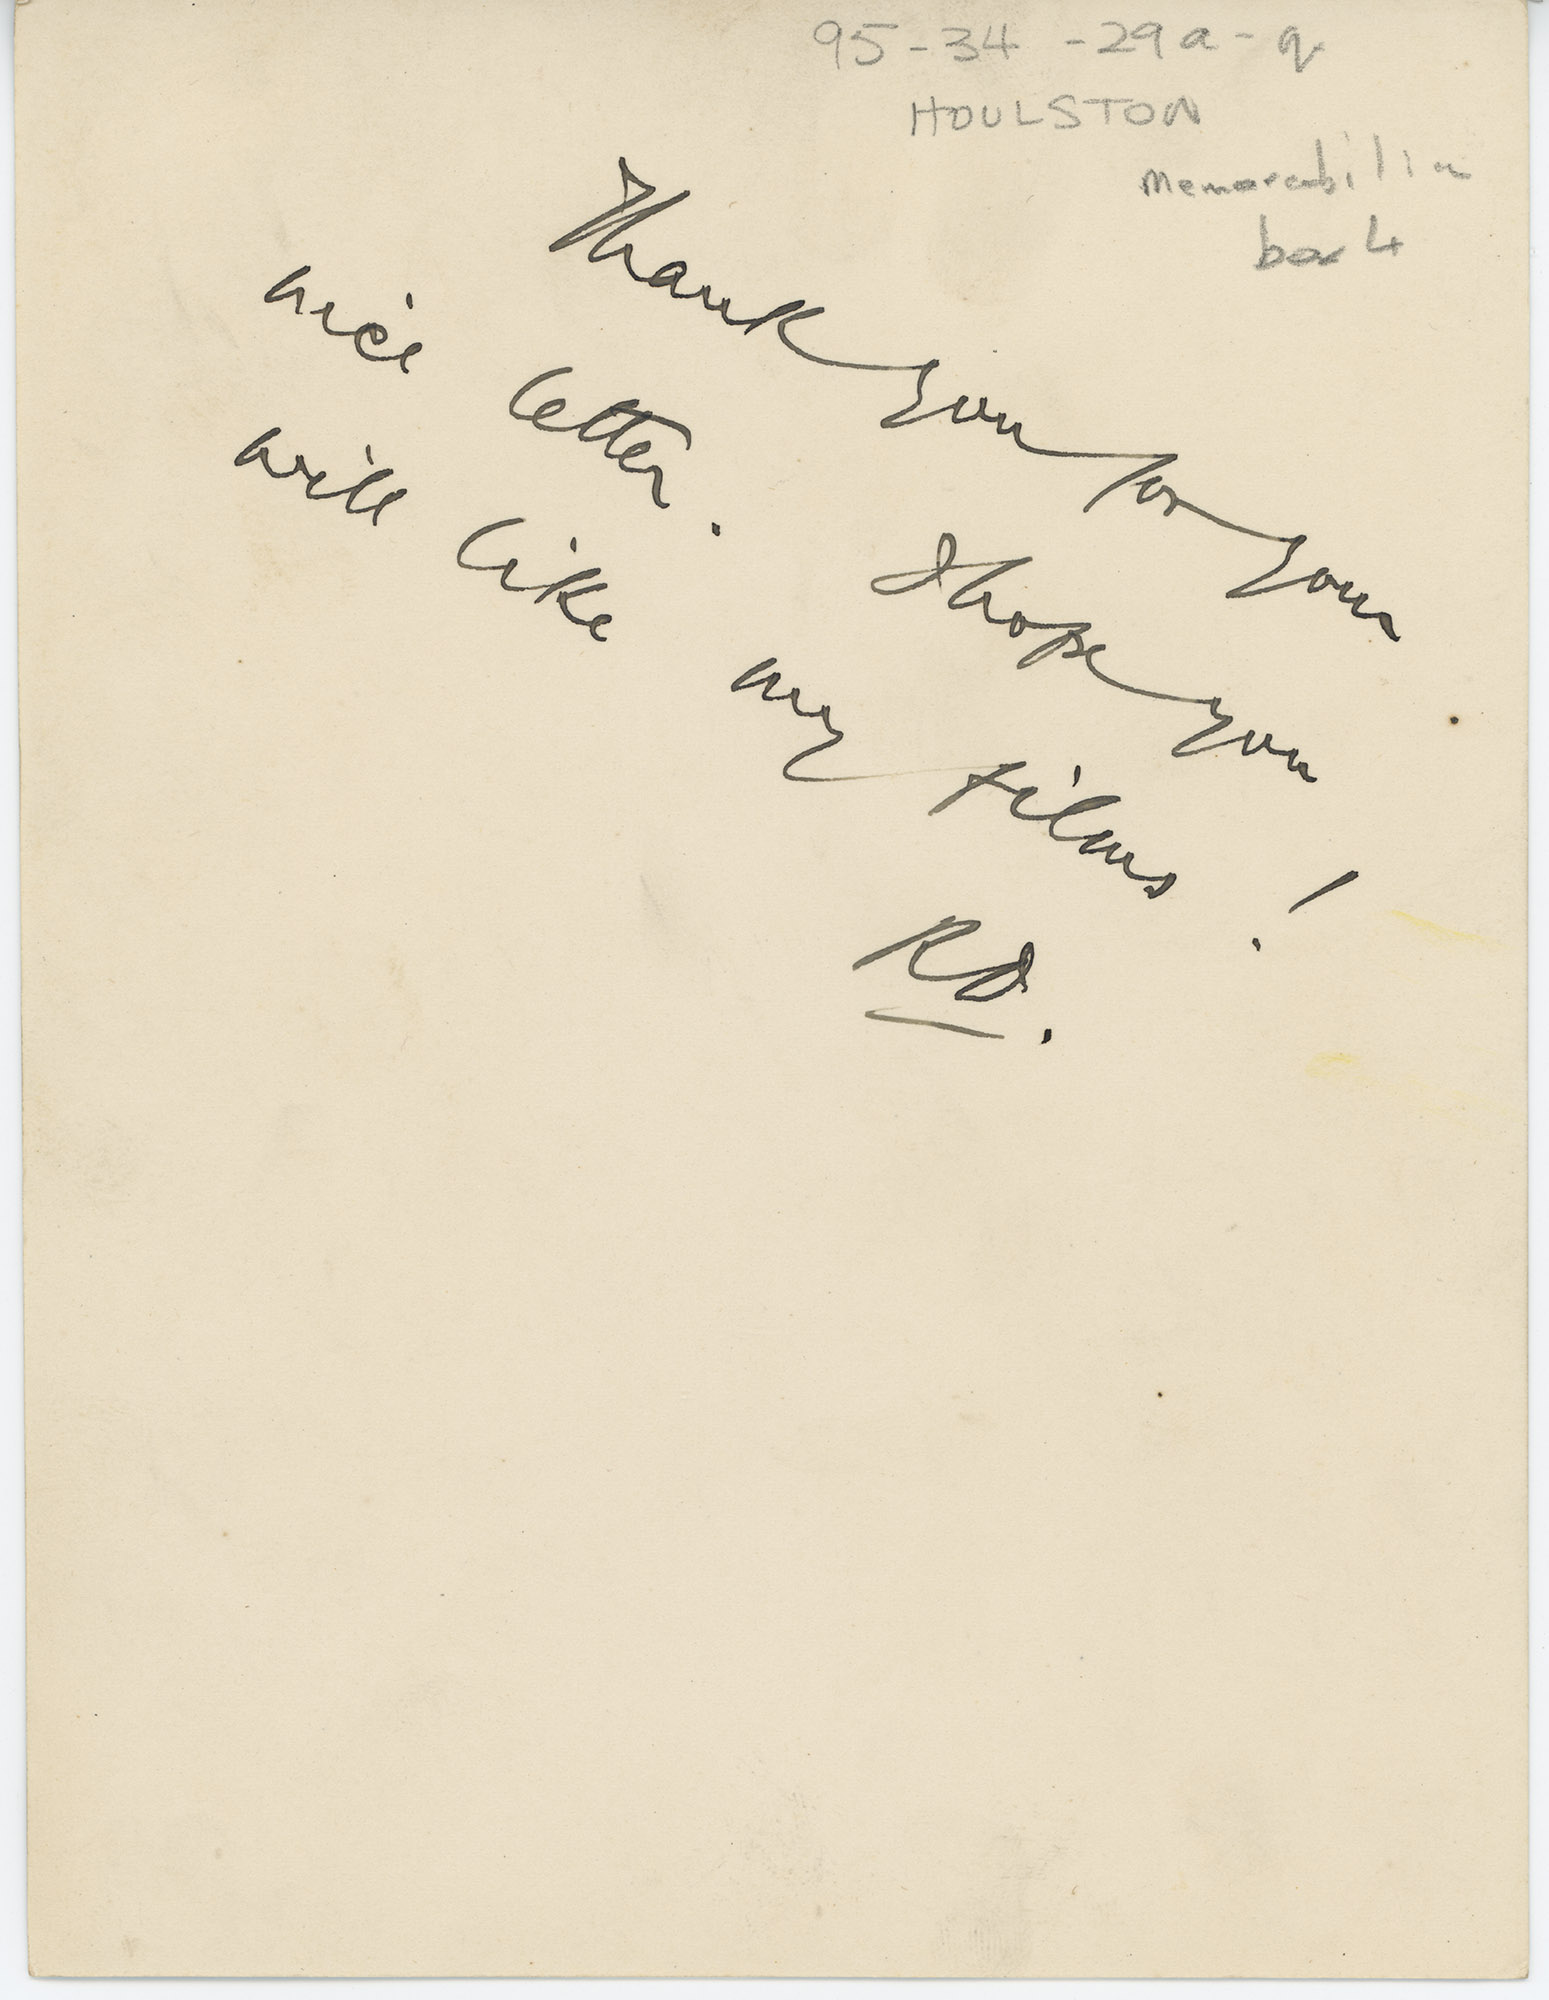 95-34 -29a-q
HOULSTON
Memorabilia
box 4
Thank you for your
nice letter. I hope you
will like my films!
RD.